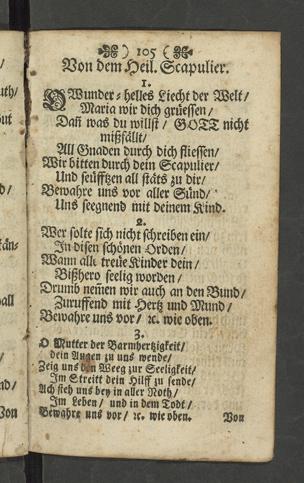 ) 105 (
Von dem Heil. Scapulier.
1.
O Wunder-helles Liecht der Welt/
Maria wir dich grüessen/
Dañ was du willst/ GOTT nicht
mißfällt/
All Gnaden durch dich fliessen/
Wir bitten durch dein Scapulier/
Und seüfftzen all stäts zu dir/
Bewahre uns vor aller Sünd/
Uns seegnend mit deinem Kind.
2.
Wer solte sich nicht schreiben ein/
In disen schönen Orden/
Wann alle treüe Kinder dein/
Bißhero seelig worden/
Drumb nem̃en wir auch an den Bund/
Zuruffend mit Hertz und Mund/
Bewahre uns vor/ ꝛc. wie oben.
3.
O Mutter der Barmhertzigkeit/
dein Augen zu uns wende/
Zeig uns den Weeg zur Seeligkeit/
Im Streitt dein Hilff zu sende/
Ach sieh uns bey in aller Noth/
Im Leben/ und in dem Todt/
Bewahre uns vor/ ꝛc. wie oben.
Von